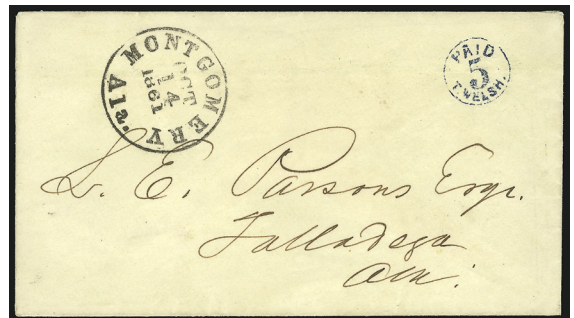 MONTGOMERY Ala.
OCT
14
1861
PAID
5
T. WELSH.
L. E. Parsons Esqr.
Talladega
Ala: